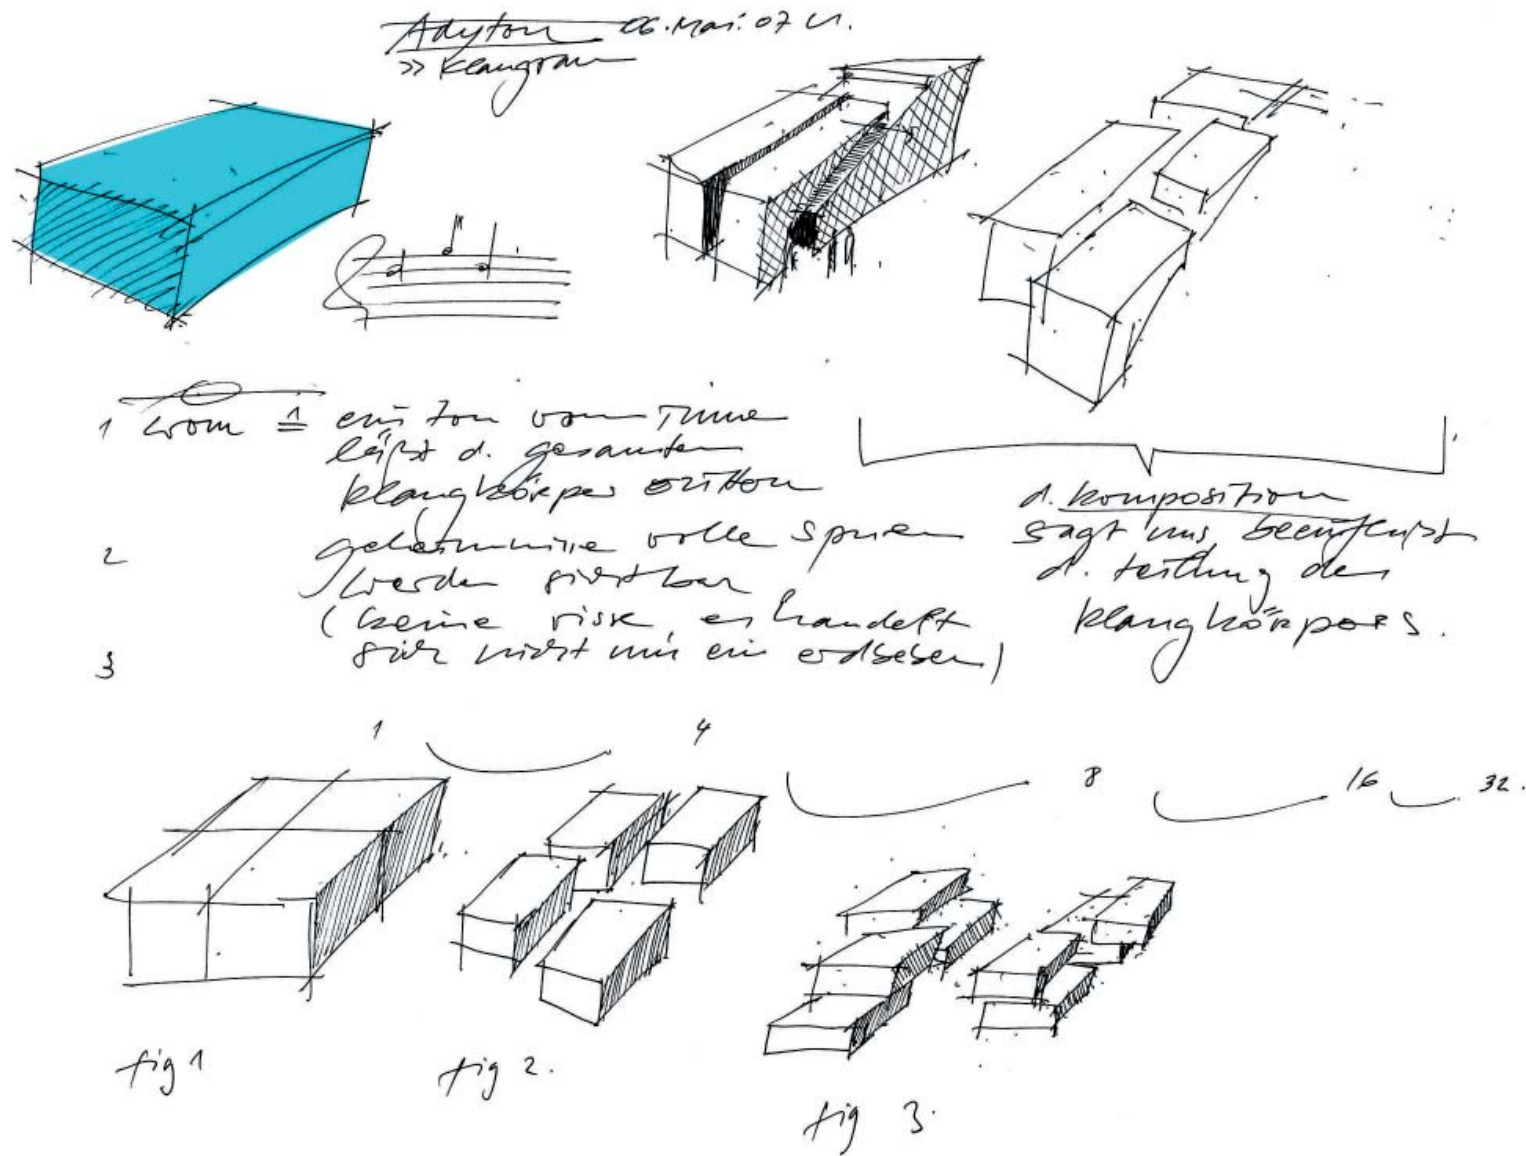 Adyton 06.Mai.07 U.
>> Klangraum
1 wom ≙ ein Ton vom Tinne
läßt d. gesamten
klangkörper erzittern
2 geheimnisse volle spuren
werden sichtbar
(keine risse es handelt
3 sich nicht um ein erdbeben)
d. komposition
sagt uns, beeinflußt
d. teilung des
klangkörpers.
1 4 8 16 32.
fig 1
fig 2.
fig 3.